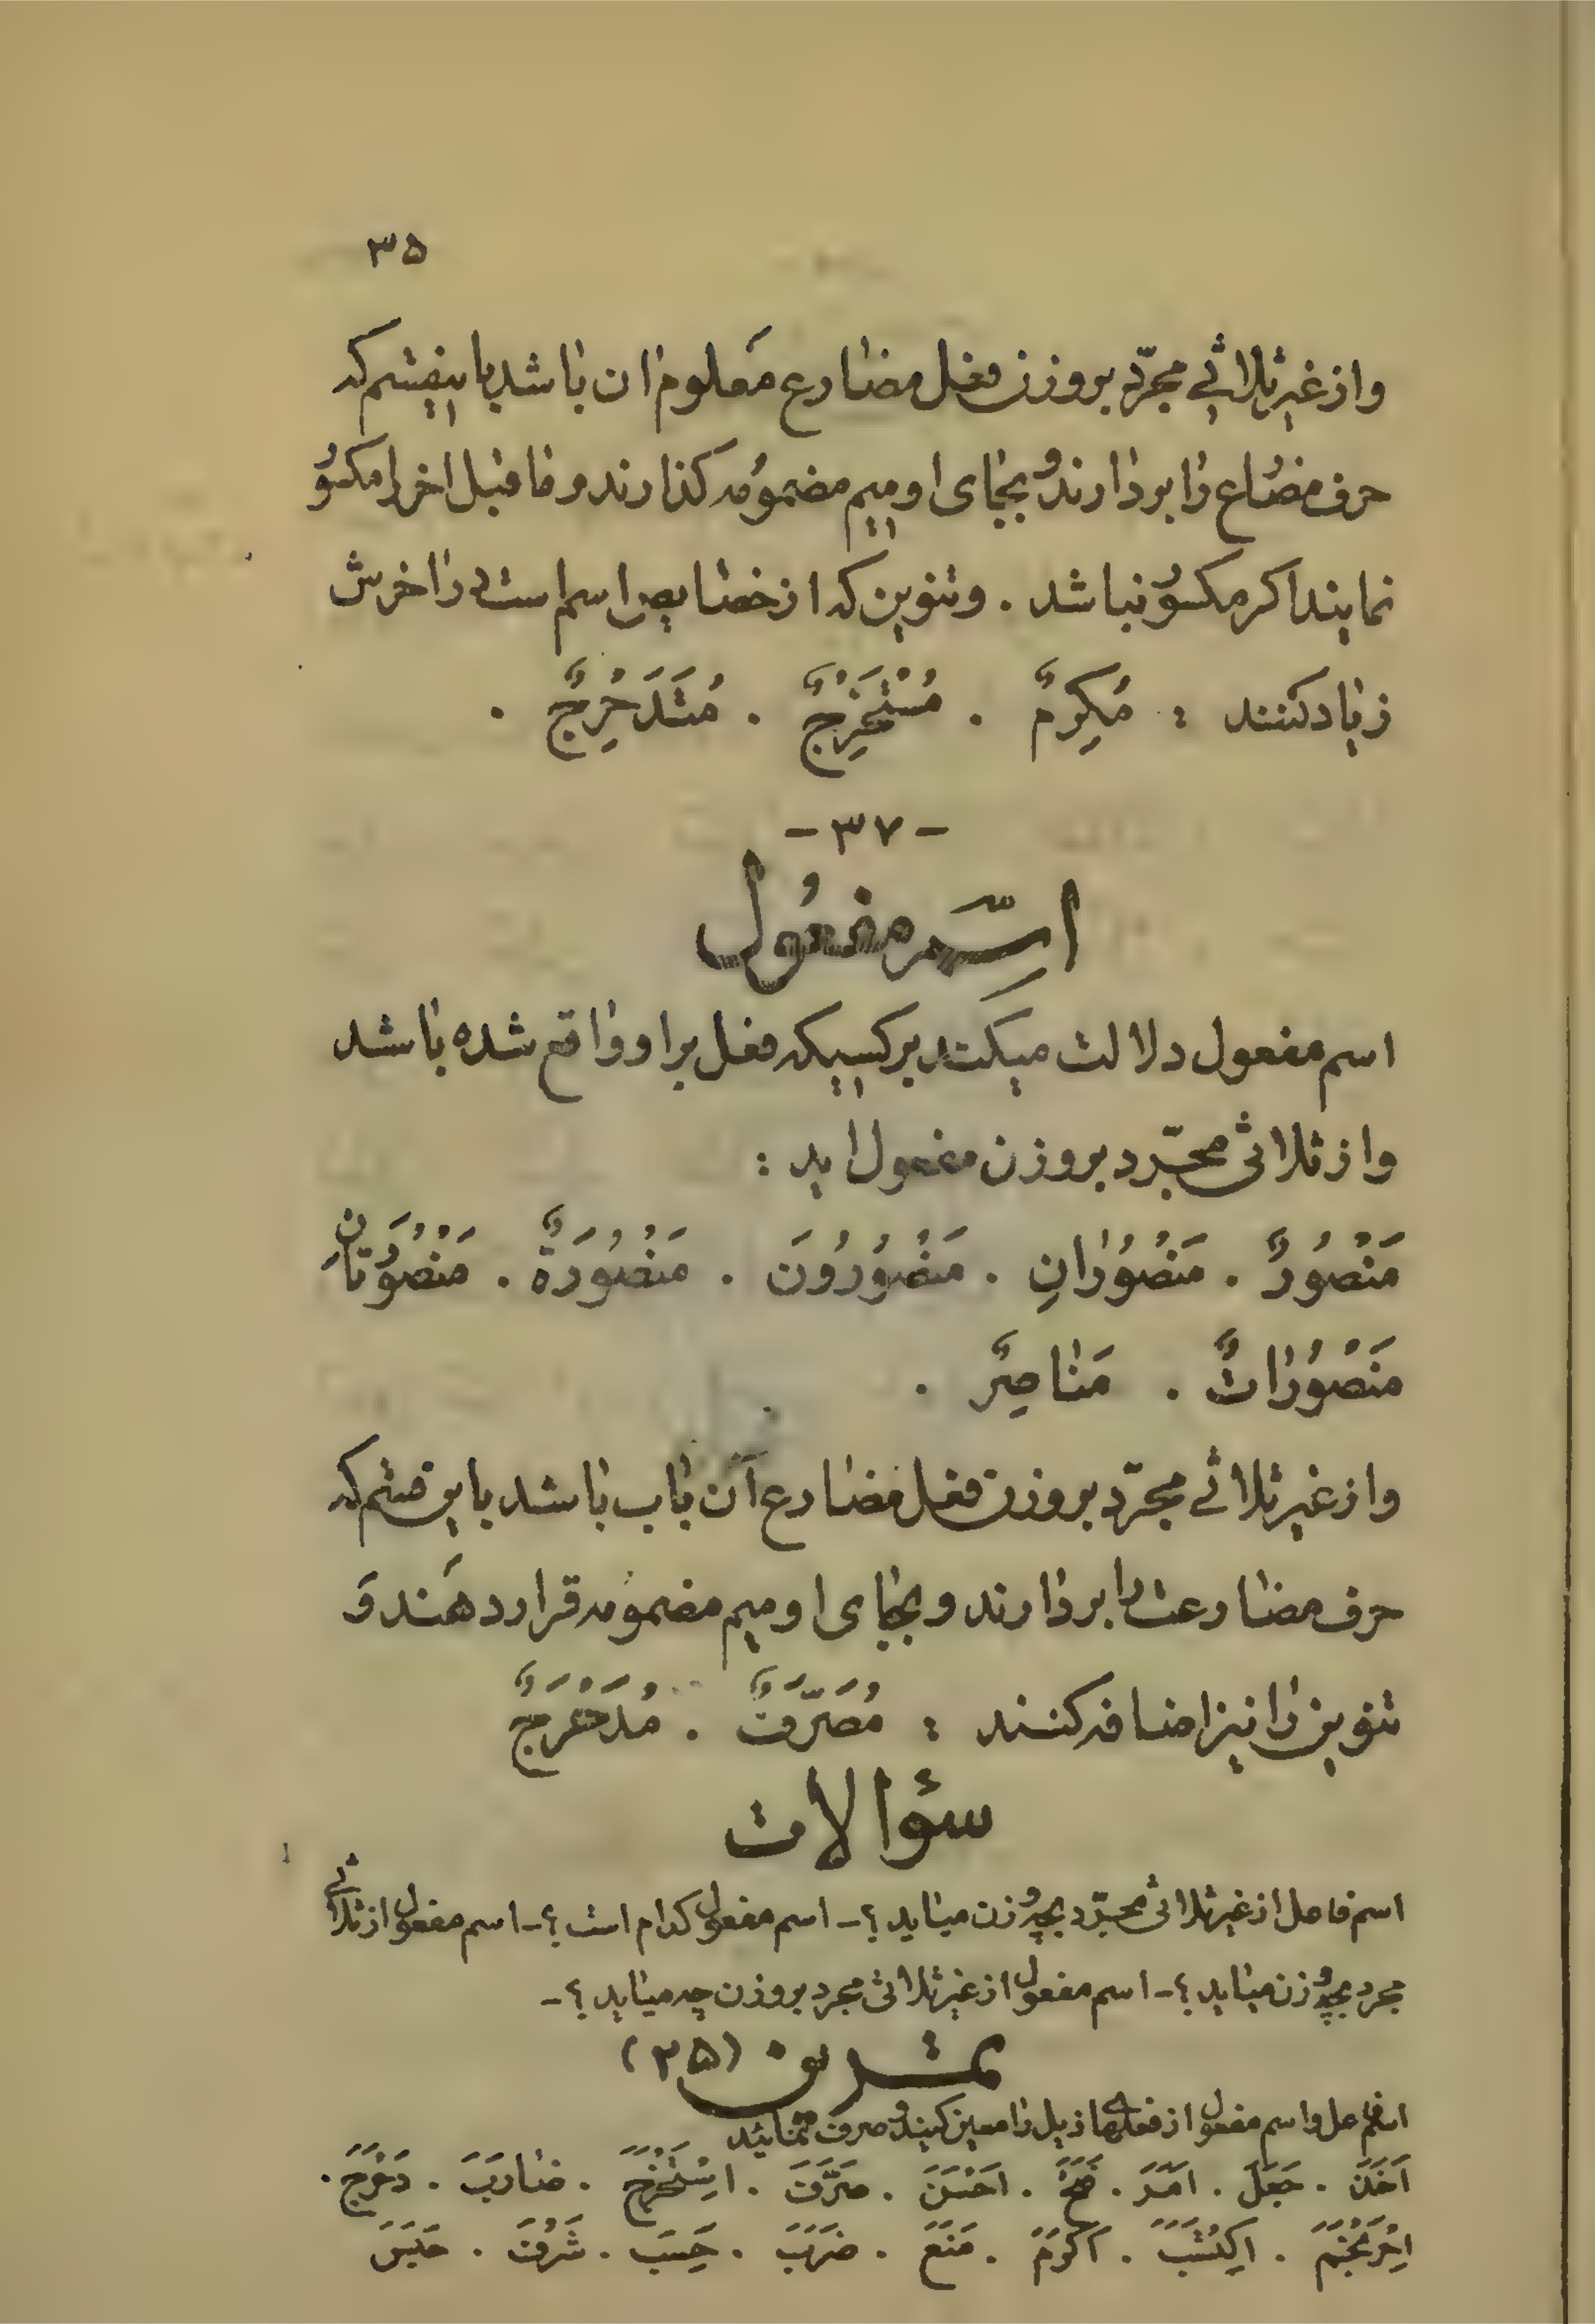 ۳۵
و از غیر ثلاثی مجرّد بر وزن فعل مضارع معلوم ان باشد باینقسم که
حرف مضارع را بردارند و بجای او میم مضمومه کذارند و ماقبل اخر را مکسور
نمایند اکر مکسور نباشد . و تنوین که از خصایص اسم است در اخرش
زیاد کنند : مُکرِمٌ . مُسْتَخْرِجٌ . مُتَدَحْرِجٌ .
- ۳۷ -
اسم مفعُول
اسم مفعول دلالت میکند بر کسیکه فعل بر او واقع شده باشد
و از ثلاثی مجرّد بر وزن مفعول اید :
مَنْصُورٌ . مَنْصُورانِ . مَنْصُورُونَ . مَنْصُورَةٌ . مَنْصُورَتانِ
مَنْصُوراتٌ . مَناصِرٌ .
و از غیر ثلاثی مجرّد بر وزن فعل مضارع آن باب باشد باین قسم که
حرف مضارعت را بردارند و بجای او میم مضمومه قرار دهند وَ
تنوین را نیز اضافه کنند : مُصَرَّفٌ . مُدَحْرَجٌ
سؤالات
اسم فاعل از غیر ثلاثی مجرّد بچه وزن میاید ؟ - اسم مفعول کدام است ؟ - اسم مفعول از ثلاثی
مجرد بچه وزن میاید ؟ - اسم مفعول از غیر ثلاثی مجرد بر وزن چه میاید ؟ -
تمرین (۲۵)
اسم فاعل و اسم مفعول از فعلهای ذیل را معین کنید و صرف نمائید
اَخَذَ . جَعَلَ . اَمَرَ . فَتَحَ . اَحْسَنَ . صَرَّفَ . اِسْتَخْرَجَ . ضارَبَ . دَحْرَجَ .
اِحْرَنْجَمَ . اِکتَسَبَ . اَکرَمَ . مَنَعَ . ضَرَبَ . حَسِبَ . شَرُفَ . حَبَسَ